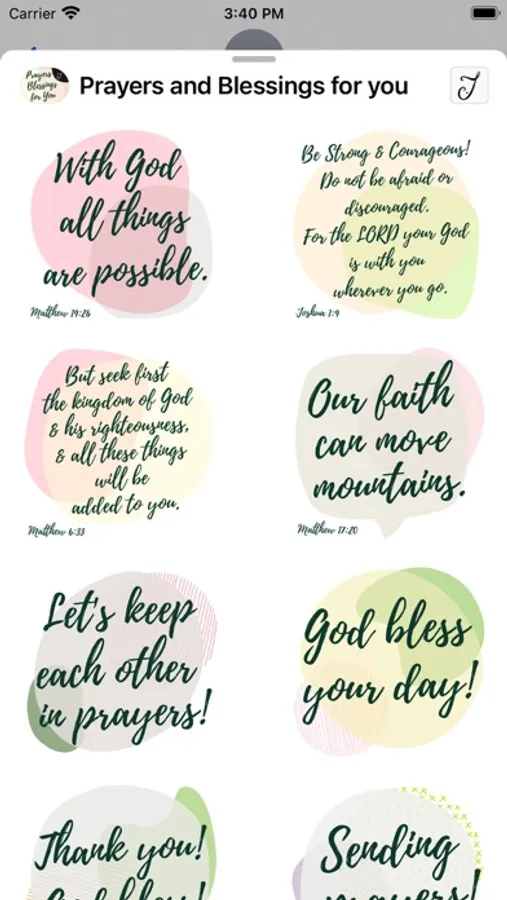 Carrier 3:40 PM
Prayers
Blessings
for You
Prayers and Blessings for you
J
With God
all things
are possible.
Matthew 19:26
Be Strong & Courageous!
Do not be afraid or
discouraged.
For the LORD your God
is with you
wherever you go.
Joshua 1:9
But seek first
the kingdom of God
& his righteousness,
& all these things
will be
added to you.
Matthew 6:33
Our faith
can move
mountains.
Matthew 17:20
Let's keep
each other
in prayers!
God bless
your day!
Thank you!
Sending